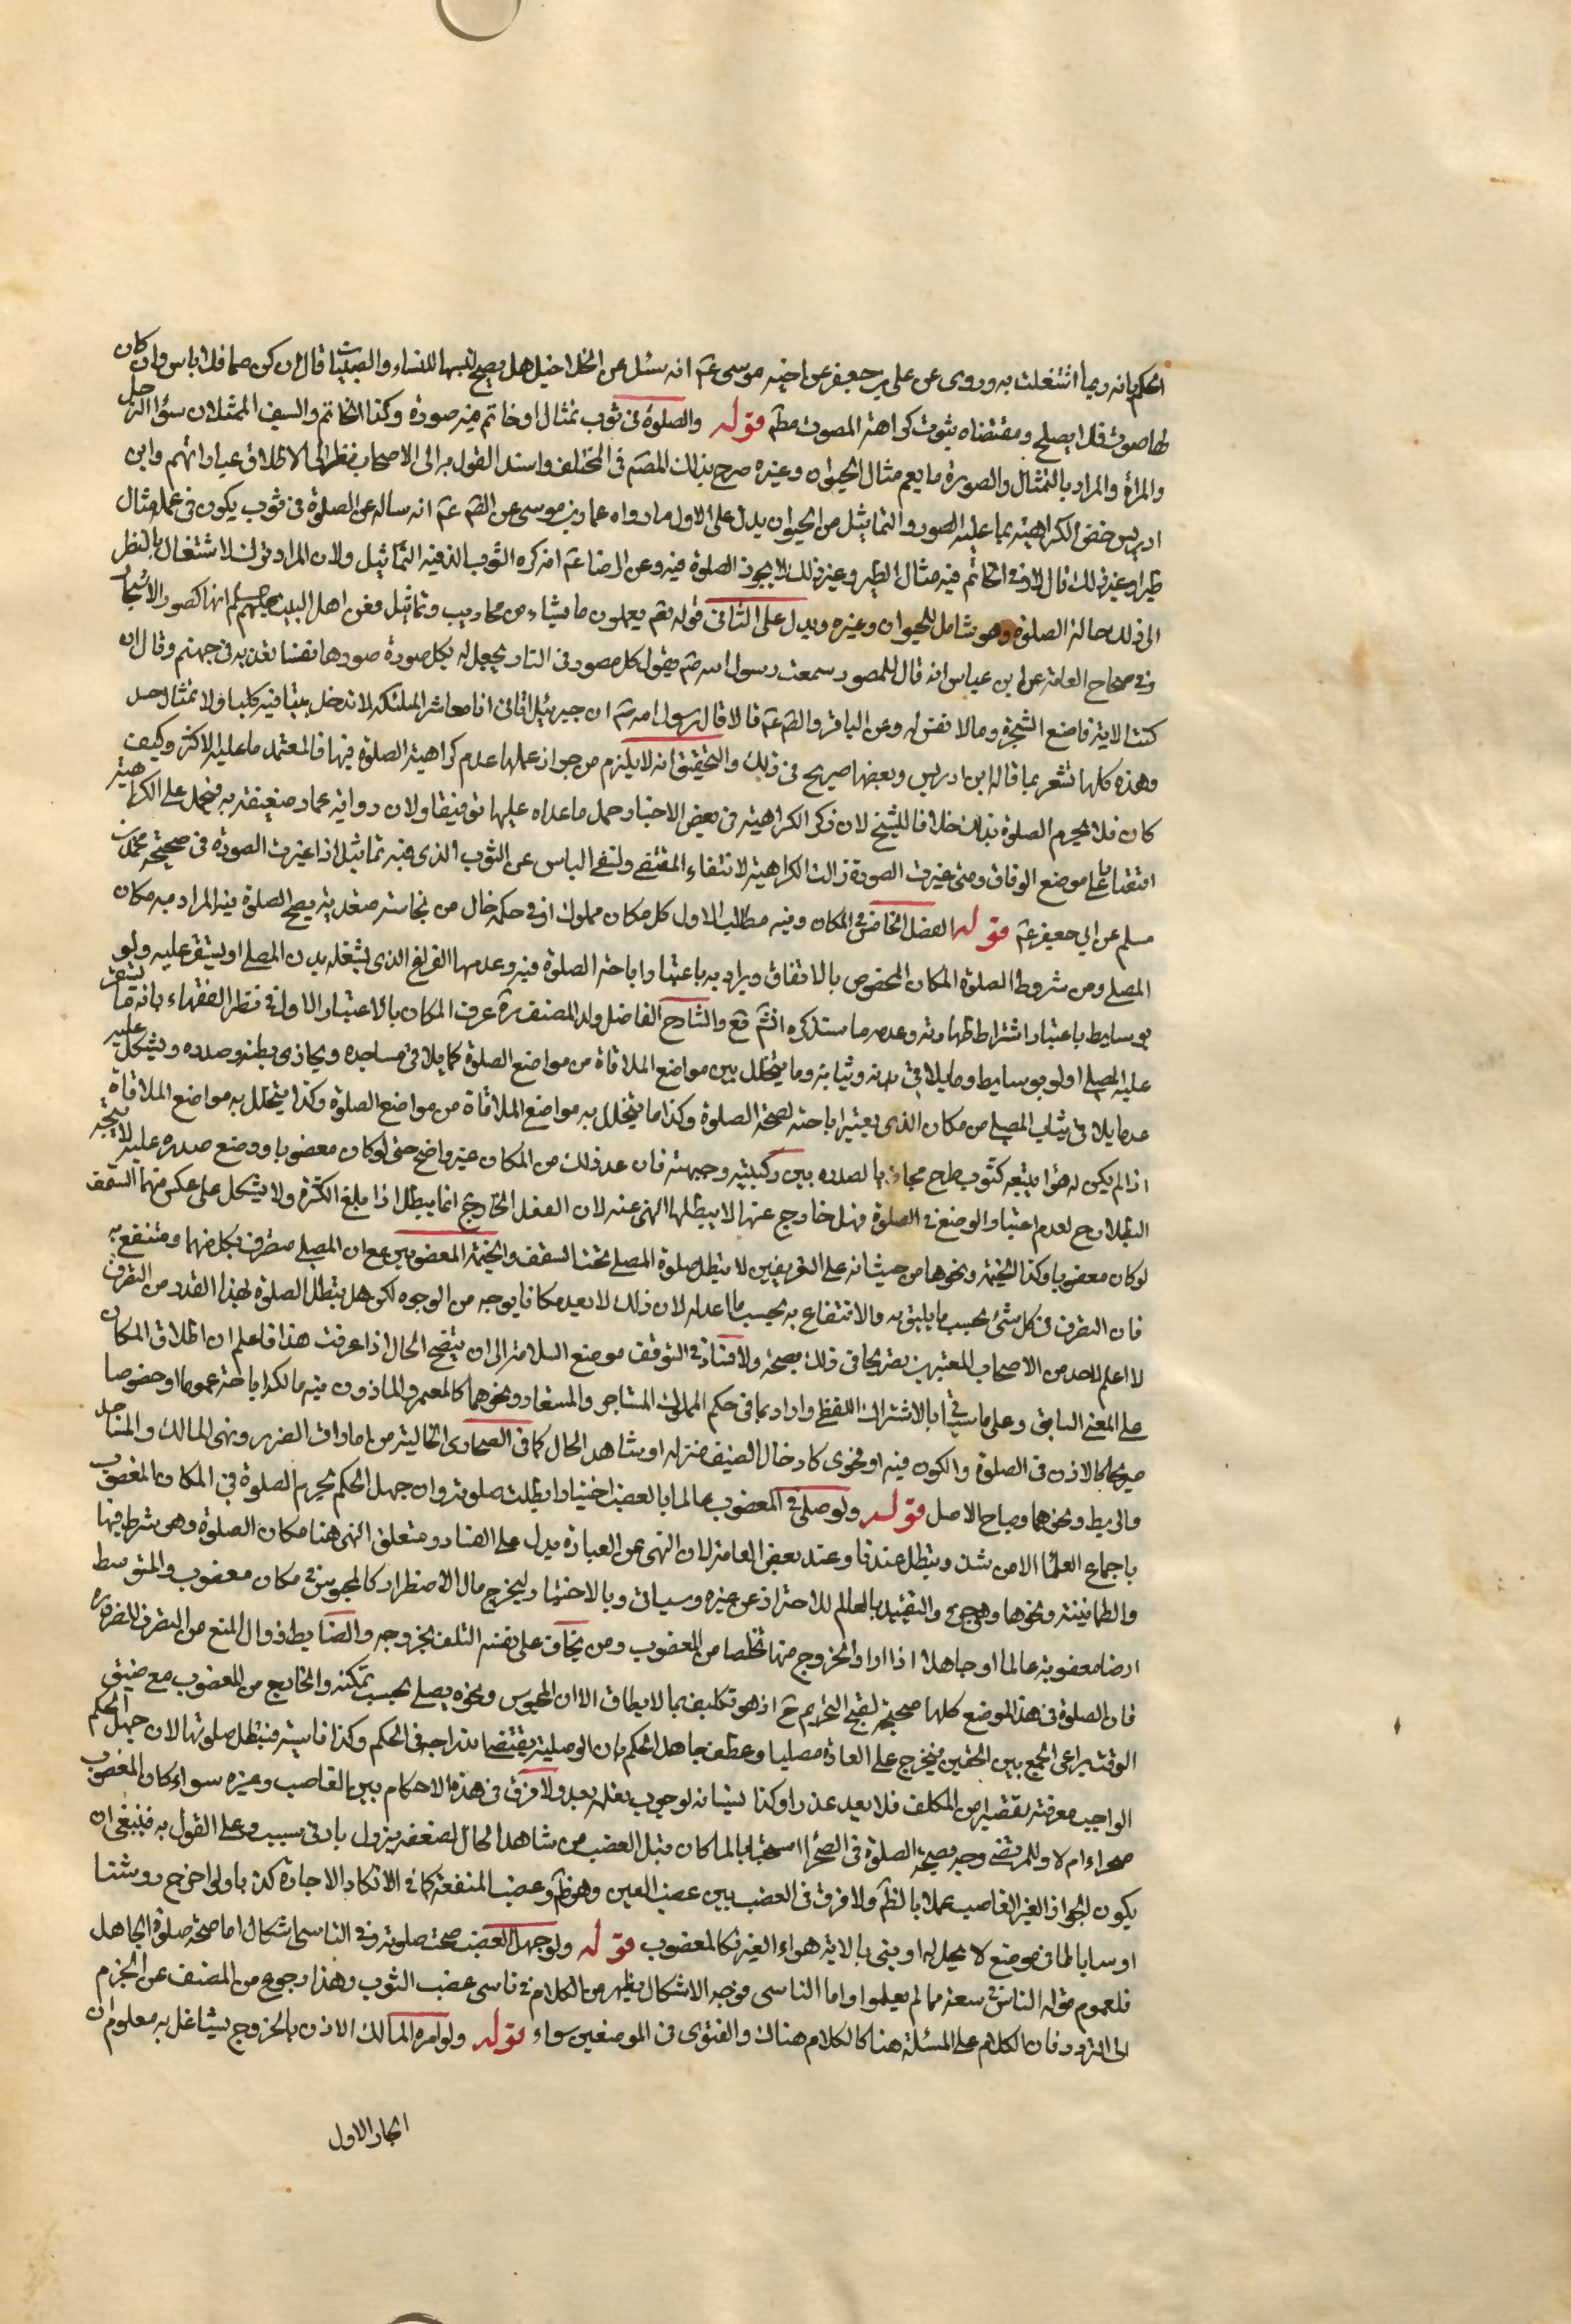 الحكم بانه ربما اشتغلت به وروى عن على بن جعفر عن اخيه موسى عم انه سئل عن الخلاخيل هل يصح لبسها للنساء والصبيان قال ان كن صما فلا باس وان كان
لها صوت فلا يصلح ومقتضاه ثبوت كراهة المصوت مطم قوله والصلوة فى ثوب تمثال او خاتم فيه صورة وكذا الخاتم والسيف الممثلان سواء الرجل
والمراة والمراد بالتمثال والصورة ما يعم مثال الحيوان وغيره صرح بذلك المصم فى المختلف واسند القول به الى الاصحاب نظرا الى الاطلاق عباراتهم وابن
ادريس خص الكراهية بما عليه الصور والتماثيل من الحيوان يدل على الاول ما رواه عمار بن موسى عن الصم عم انه ساله عن الصلوة فى ثوب يكون فى عمله مثال
طير او غير ذلك قال لا وفى الخاتم فيه مثال الطير وغير ذلك لا يجوز الصلوة فيه وعن الرضا عم انه كره الثوب الذ فيه التماثيل ولان المراد ترك الاشتغال بالنظر
الى ذلك حالة الصلوة وهو شامل للحيوان وغيره ويدل على الثانى قوله تعم يعملون ما يشاء من محاريب وتماثيل فعن اهل البيت عليهم السلم انها كصور الاشجار
وفى صحاح العامة عن ابن عباس انه قال للمصور سمعت رسول الله صم يقول كل مصور فى النار يجعل له بكل صورة صورها نفسا تعذبه فى جهنم وقال ان
كنت لابد فاصنع الشجرة وما لا نفس له وعن الباقر والصم عم قالا قال رسول الله صم ان جبرئيل اتانى انا معاشر الملئكة لا ندخل بيتا فيه كلب ولا تمثال جسد
وهذه كلها تشعر بما قاله ابن ادريس وبعضها صريح فى ذلك والتحقيق انه لا يلزم من جواز عملها عدم كراهية الصلوة فيها فالمعتمد ما عليه الاكثر وكيف
كان فلا يحرم الصلوة بذلك خلافا للشيخ لان ذكر الكراهية فى بعض الاخبار حمل ما عداه عليها توفيقا ولان رواية عمار ضعيفة به فيحمل على الكراهية
اقتصارا على موضع الوفاق ومتى غيرت الصورة زالت الكراهية لانتفاء المقتضى ولنفى الباس عن الثوب الذى فيه تماثيل اذا غيرت الصورة فى صحيحة محمد بن
مسلم عن ابى جعفر عم قوله الفصل الخامس فى المكان وفيه مطالب الاول كل مكان مملوك او فى حكمه خال من نجاسة متعدية يصح الصلوة فيه المراد به مكان
المصلى ومن شروط الصلوة المكان المخصوص بالاتفاق ويراد به باعتبار اباحة الصلوة فيه وعدمها الفراغ الذى يشغله بدن المصلى او يستقر عليه ولو
بوسايط باعتبار اشتراط طهارته وعدمه ما ستذكره انشم تع والشارح الفاضل ولد المصنف ره عرف المكان بالاعتبار الاول فى نظر الفقهاء بانه ما يستقر
عليه المصلى ولو بوسايط وما يلاقى بدنه وثيابه وما يتخلل بين مواضع الملاقاة من مواضع الصلوة كما يلاقى مساجده ويحاذى بطنه وصدره ويشكل عليه
عد ما يلاقى ثياب المصلى من مكان الذى يعتبر اباحته لصحة الصلوة وكذا ما يتخلل به مواضع الملاقاة من مواضع الصلوة وكذا يتخلل به مواضع الملاقاة
اذا لم يكن له هواء يتبعه كثوب طرح مجاذيا لصدره بين ركبتيه وجبهته فان عد ذلك من المكان غير واضح حتى لو كان مغصوبا ووضع صدره عليه لا يتجه
البطلان ح لعدم اعتبار الوضع فى الصلوة فهل خارج عنها لا يبطلها النهى عنه لان الفعل الخارج انما يبطل اذا بلغ الكثرة ولا يشكل على عكسهما السقف
لو كان مغصوبا وكذا الخيمة ونحوها من حيث انه على التعريفين لا يبطل صلوة المصلى تحت السقف والخيمة المغصوبين مع ان المصلى متصرف بكل منهما ومنتفع به
فان التصرف فى كل شئ بحسب ما يليق به والانتفاع به بحسب ما اعد له لان ذلك لا يعد مكانا بوجه من الوجوه لكن هل يبطل الصلوة بهذا القدر من التصرف
لا اعلم لاحد من الاصحاب المعتبرين تصريحا فى ذلك بصحة ولا فساد فى التوقف موضع السلامة الى ان يتضح الحال اذا عرفت هذا فاعلم ان اطلاق المكان
على المعنى السابق وعلى ما سياتى بالاشتراك اللفظى واراد بما فى حكم المملوك المستاجر والمستعار ونحوهما كالمعمر والماذون فيه مالكه اباحة عموما او خصوصا
صريحا كالاذن فى الصلوة والكون فيه او فحوى كادخال الضيف منزله او شاهد الحال كما فى الصحارى الخالية من امارات الضرر ونهى المالك والمساجد
والربط ونحوهما ومباح الاصل قوله ولو صلى فى المغصوب عالما بالغصب اختيارا بطلت صلوته وان جهل الحكم تحريم الصلوة فى المكان المغصوب
باجماع العلما الا من شذ وتبطل عندنا وعند بعض العامة لان النهى عن العبادة يدل على الفساد ومتعلق النهى هنا مكان الصلوة وهو شرط فيها
والطمانينة ونحوها وهى جزء والتقييد بالعالم للاحتراز عن غيره وسياتى وبالاختيار ليخرج حال الاضطرار كالمحبوس فى مكان مغصوب والمتوسط
ارضا مغصوبة عالما او جاهلا اذا اراد الخروج منها تخلصا من المغصوب ومن يخاف على نفسه التلف بخروجه والضابط زوال المنع من التصرف للضرورة
فان الصلوة فى هذا الموضع كلها صحيحة لقبح التحريم ح اذ هو تكليف بما لا يطاق الا ان المحبوس ونحوه يصلى بحسب تمكنه والخارج من المغصوب مع ضيق
الوقت يراعى الجمع بين الحقين فيخرج على العادة مصليا وعطف جاهل الحكم بان الوصلية يقتضى اندراجه فى الحكم وكذا ناسيه فتبطل صلوتهما لان جهل الحكم
الواجب معرفته تقصير من المكلف فلا يعد عذرا وكذا نسيانه لوجوب تعلمه بعد ولا فرق فى هذه الاحكام بين الغاصب وغيره سواء كان المغصوب
صحراء ام لا وللمرتضى وجه بصحة الصلوة فى الصحرا استصحابا لما كان قبل الغصب من شاهد الحال لضعفه يزول بادنى سبب وعلى القول به فينبغى ان
يكون الجواز لغير الغاصب عملا بالظم ولا فرق فى الغصب بين غصب العين وهو ظم وغصب المنفعة كما فى الانكار الاجارة كذبا ولو اخرج روشنا
او ساباطا فى موضع لا يحل له او بنى بالاية هواء الغير فكالمغصوب قوله ولو جهل الغصب صحت صلوته وفى الناسى اشكال اما صحة صلوة الجاهل
فلعموم قوله الناس فى سعة مما لم يعلموا واما الناسى فوجه الاشكال يظهر من الكلام فى ناسى غصب الثوب وهذا رجوع من المصنف عن الجزم
الى التردد فان الكلام على المسئلة هنا كالكلام هناك والفتوى فى الموضعين سواء قوله ولو امره المالك الاذن بالخروج يتشاغل به معلوم ان
الجار الاول